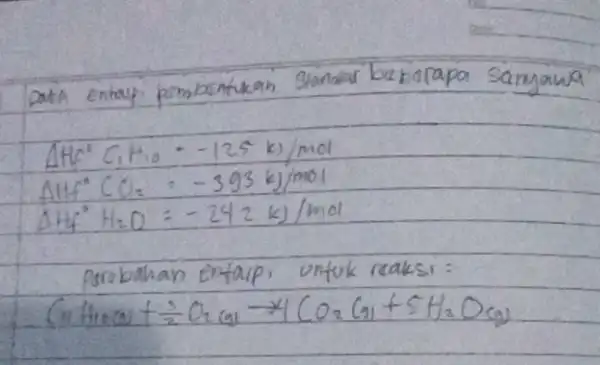 Data entalpi pembentukan standar beberapa sanyawa
ΔHf° C4H10 = -125 kJ/mol
ΔHf° CO2 = -393 kJ/mol
ΔHf° H2O = -242 kJ/mol
perubahan entalpi untuk reaksi :
C4H10(g) + O2(g) → 4 CO2(g) + 5 H2O(g)